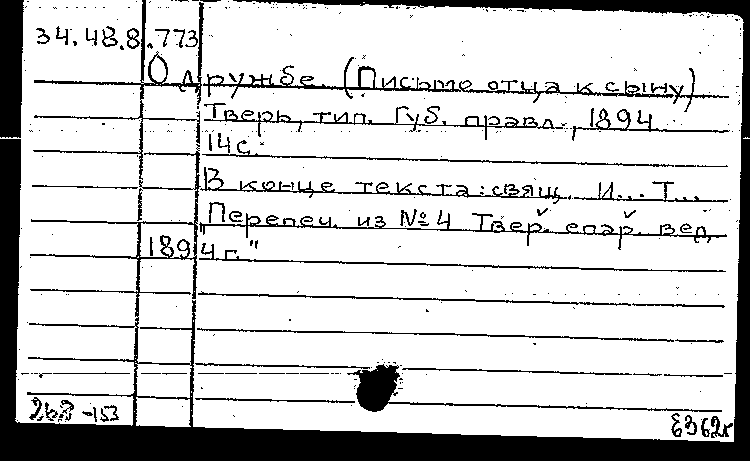 34.48.8.773
О дружбе. (Письмо отца к сыну)
Тверь, тип. Губ. правл., 1894
14 с.
В конце текста: свящ. И... Т...
"Перепеч. из №4 Твер. епар. вед.
1894 г."
268-153